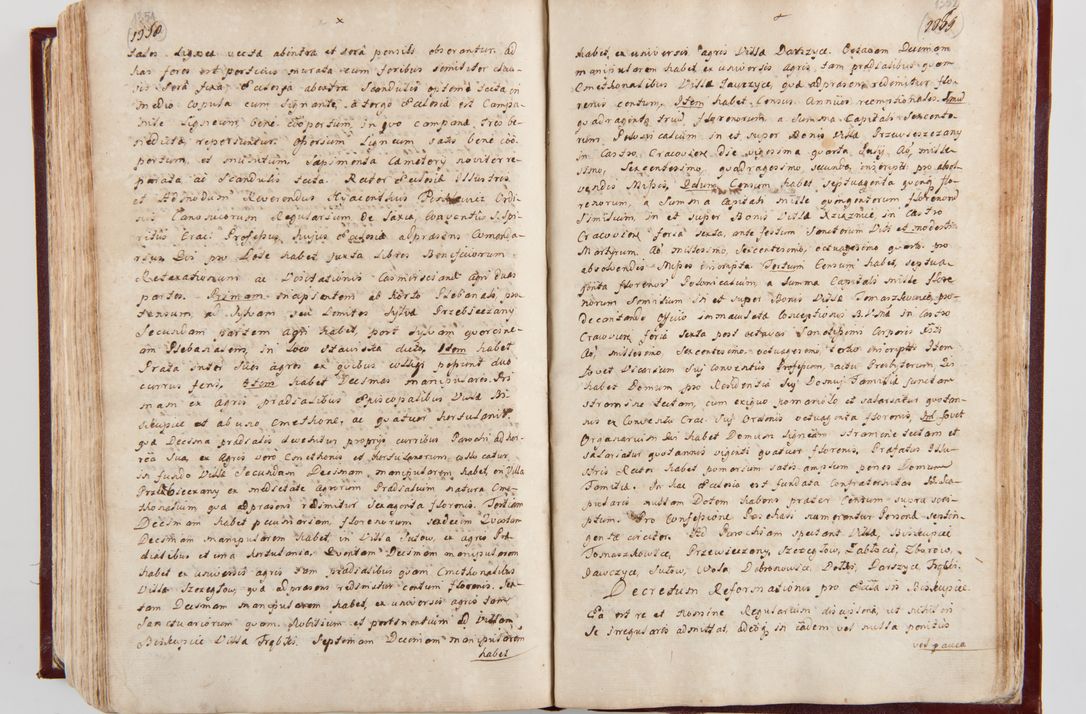 1358
tales. Lignea vecta abintra et sera pensili obserantur ad
has fores est porticus murata cum foribus similiter clau-
sis sera fixa
medio copula cum signante, a tergo Ecclesia est Campa-
nile Ligneum bene coopertum, in quo campanæ tres be-
nedictæ reperiuntur. Ossorium Ligneum satis bene coo-
pertum, et munitum. Sæpimenta Cæmeterij noviter re-
parata ac Scandulis tecta. Rector Ecclesiæ Illustris
et Admodum Reverendus Hyacenthus Ordi-
nis Canonicorum Regularium de Saxia, Conventus S. Spi-
ritus Crac: Professus, hujus Ecclesiæ ad præsens Comenda-
rius Qui pro Dote habet juxta Libros Beneficiorum
Retaxationum ac Visitationis Casimirscianæ Agri duas
partes. Primam incipientem ab horto Plebanali, pro-
tensum, ad Sylvam seu Limites Sylvæ Przebieczany
Secundam partem agri habet, post Sylvam quercine-
am Plebanalem, in loco Stawiska dicto, Item habet
Prata inter hos agros ex quibus colligi possunt duo
currus feni, Item habet Decimas manipulares. Pri-
mam ex agris prædialibus Episcopalibus Villæ Bi-
skupice et ab uno Cmethone, ac quatuor hortulanis,
quæ Decima prædialis devehitur proprijs curribus Parochi ad hor-
rea sua, ex Agris vero Cmethonis et hortulanorum, collocatur
in fundo Villæ Secundam Decimam, manipularem habet, in Villa
Przebieczany ex medietate agrorum Prædialium natura Cme-
thonalium quæ ad præsens redimitur sexaginta florenis. Tertiam
Decimam habet pecuniariam florenorum sedecim Quartam
Decimam manipularem habet in Villa Sułow, ex agris Præ-
dialibus et una hortulania, Quintam Decimam manipularem
habet ex universis agris tam prædialibus quam Cmethonalibus
Villæ Szczegłow, quæ ad præsens redimitur centum florenis. Sex-
tam Decimam manipularem habet, ex universis agris tam
Sanctuariorum quam Nobilium et pertinentium ad Villam
Biskupice Villæ Trąbki. Septimam Decimam manipularem
habet
1359
habet, ex universis agris Villæ Darszyce. Octavam Decimam
manipularem habet ex universis agris, tam prædialibus quam
Cmethonalibus Villæ Jawczyce, quæ ad præsens redimitur flo-
renis centum, Item habet Census Annuos reemptionales. Primum
quadraginta trium florenorum a Summa Capitali Sexcento-
rum Polonicalium in et super Bonis Villæ Przewieczany
in Castro Cracovien: die vigesima quarta Junij Ao, mille-
simo, Sexcentesimo, quadragesimo secundo, inscripti pro absol-
vendis Missis, Datum Censum habet septuaginta quinque flo-
renorum, a Summa Capitali mille quingentorum florenorum
Similium, in et super Bonis Villæ Krzążnie, in Castro
Cracovien: feria sexta, ante festum Sanctorum Viti et Modesti
Martyrum Ao millesimo, Sexcentesimo, octuagesimo quarto, pro
absolvendis Missis inscripta Tertium Censum habet, septua-
ginta florenor Polonicalium a Summa Capitali mille flore-
norum Similium in et super Bonis Villæ Tomaszkowice, pro
decantando Officio immaculatæ Conceptionis B. V. Mæ in Castro
Cracovien feria sexta post octavas Sanctissimi Corporis Xsti
Ao, millesimo Sexcentesimo octuagesimo, tertio inscripti Item
fovet Vicarium sui Conventus Professum, actu Presbyterum, Qui
habet Domum pro Residentia sui Domui familiæ junctam
stramine tectam, cum exiguo pomariolo et salariatur quotan-
nis ex Conventu Crac: sui Ordinis octuaginta florenis, Ind fovet
Organarium Qui habet Domum Ligneam stramine tectam et
salariatur quotannis viginti quatuor florenis, Præfatus Illu-
stris Rector habet pomarium satis amplum penes Domum
Familiæ. In hac Ecclesia est fundata Confraternitas Ska-
pularis nullam Dotem habens præter Censum supra scri-
ptum. Pro Confessione Paschali numerantur Personæ septin-
gentæ circiter. Ad Parochiam spectant Villæ, Biskupice
Tomaszkowice, Przewieczany, Szczegłow, Łabłoći, Zborow,
Jawczyce, Sułow, Wola Dobronowice, Dołki, Darszyce, Trąbki.
Decretum Reformationis pro Ecclesia in Biskupice
Ea est re et Nomine Regularium disciplina, ut nihil in
se irregularis admittat, adeoque in eadem vel nulla penitus
vel pauca